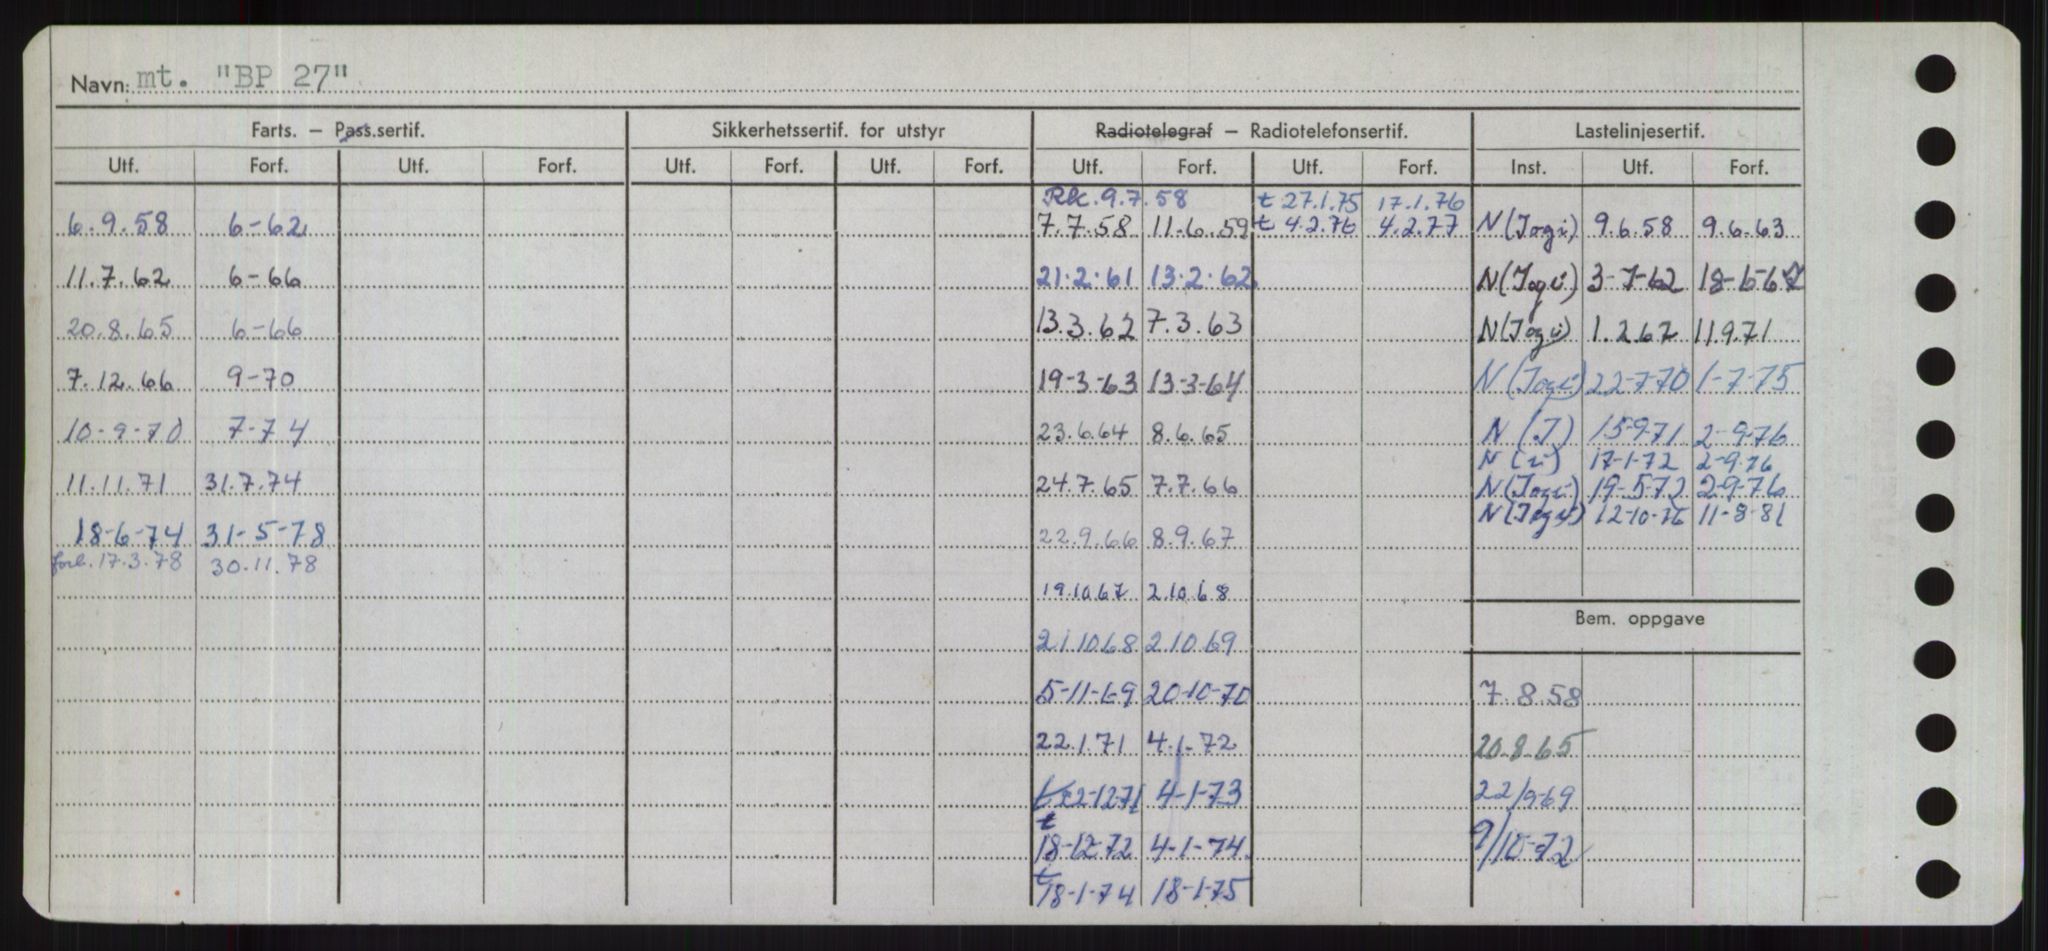 Navn: mt. "BP 27"
Farts. – Pass.sertif. Sikkerhetssertif. for utstyr Radiotelegraf – Radiotelefonsertif. Lastelinjesertif.
Utf. Forf. Utf. Forf. Utf. Forf. Utf. Forf. Utf. Forf. Utf. Forf. Inst. Utf. Forf.
Rk. 9.7.58 t 27.1.75 17.1.76
6.9.58 6-62 7.7.58 11.6.59 t 4.2.76 4.2.77 N(Jogi) 9.6.58 9.6.63
11.7.62 6-66 21.2.61 13.2.62 N(Jogi) 3-7-62 18-6-67
20.8.65 6-66 13.3.62 7.3.63 N(Jogi) 1.2.67 11.9.71
7.12.66 9-70 19-3-63 13-3-64 N(Jogi) 22-7-70 1-7-75
10-9-70 7-74 23.6.64 8.6.65 N(J) 15-9-71 2-9-76
N(i) 17-1-72 2-9-76
11.11.71 31.7.74 24.7.65 7.7.66 N(Jogi) 19-5-72 2-9-76
N(Jogi) 12-10-76 11-8-81
18-6-74 31-5-78 22.9.66 8.9.67
forl. 17.3.78 30.11.78
19.10.67 2.10.68
Bem. oppgave
21.10.68 2.10.69
5-11-69 20-10-70 7.8.58
22.1.71 4.1.72 20.8.65
t 22-12-71 4-1-73 22/9-69
t
18-12-72 4-1-74 9/10-72
t
18-1-74 18-1-75